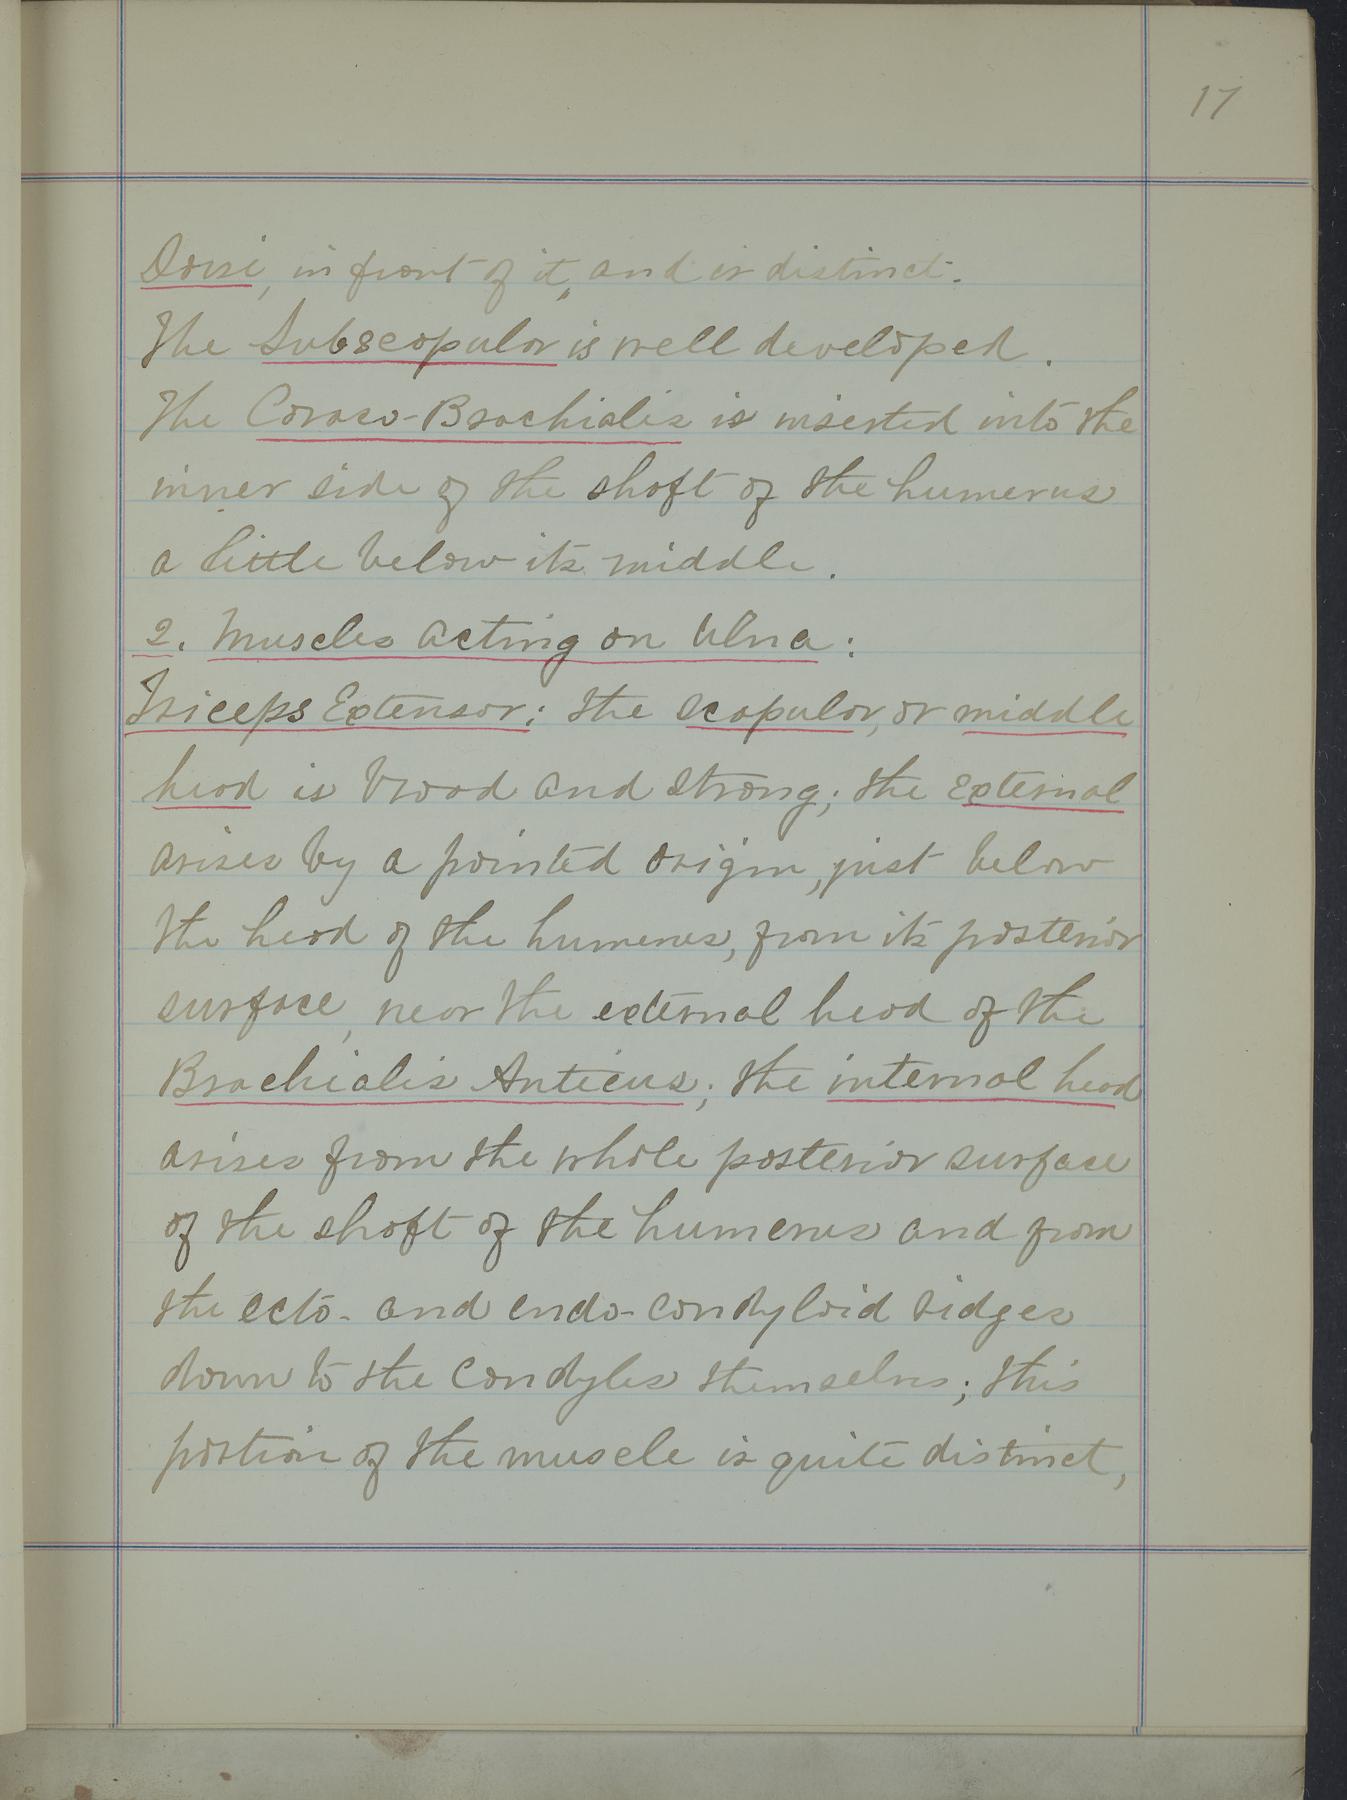 17
Dorsi, in front of it, and is distinct.
The Subscapular is well developed.
The Coraco-Brachialis is inserted into the
inner side of the shaft of the humerus
a little below its middle.
2. Muscles acting on Ulna:
Triceps Extensor; the scapular, or middle
head is broad and strong; the external
arises by a pointed origin, just below
the head of the humerus, from its posterior
surface, near the external head of the
Brachialis Anticus; the internal head
arises from the whole posterior surface
of the shaft of the humerus and from
the ecto- and endo-condyloid ridges
down to the condyles themselves; this
portion of the muscle is quite distinct,